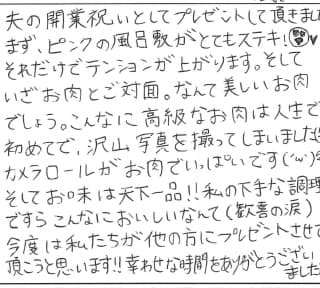 夫の開業祝いとしてプレゼントして頂きまし
まず、ピンクの風呂敷がとてもステキ！♥
それだけでテンションが上がります。そして
いざお肉とご対面。なんて美しいお肉
でしょう。こんなに高級なお肉は人生で
初めてで、沢山写真を撮ってしまいました
カメラロールがお肉でいっぱいです('ω')
そしてお味は天下一品!!私の下手な調理
ですらこんなにおいしいなんて(歓喜の涙)
今度は私たちが他の方にプレゼントさせて
頂こうと思います!!幸わせな時間をありがとうござい
ました